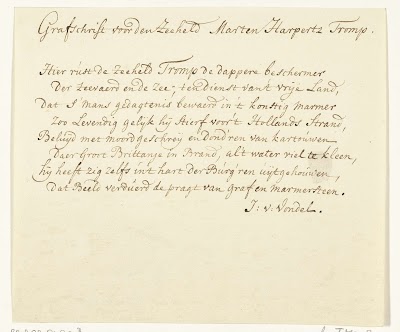 Grafschrift voor den Zeeheld Marten Harpertz Tromp.
Hier rúst de Zeeheld Tromp de dappere beschermer
Der Zeevaerd en de Zee, ten dienst vant vrije Land,
Dat S mans gedagtenis bewaerd in't konstig marmer
Zoo Levendig gelyk hij Stierf voor't Hollands Strand,
Beluyd met moordgeschreÿ en dond'ren van kartouwen
Daer Groot Brittanje in Brand, alt water viel te kleen,
hij heeft zig zelfs int hart der Búrg'ren uytgehouwen,
Dat Beeld verdúerd de pragt van Graf en marmersteen.
J: v: Vondel.